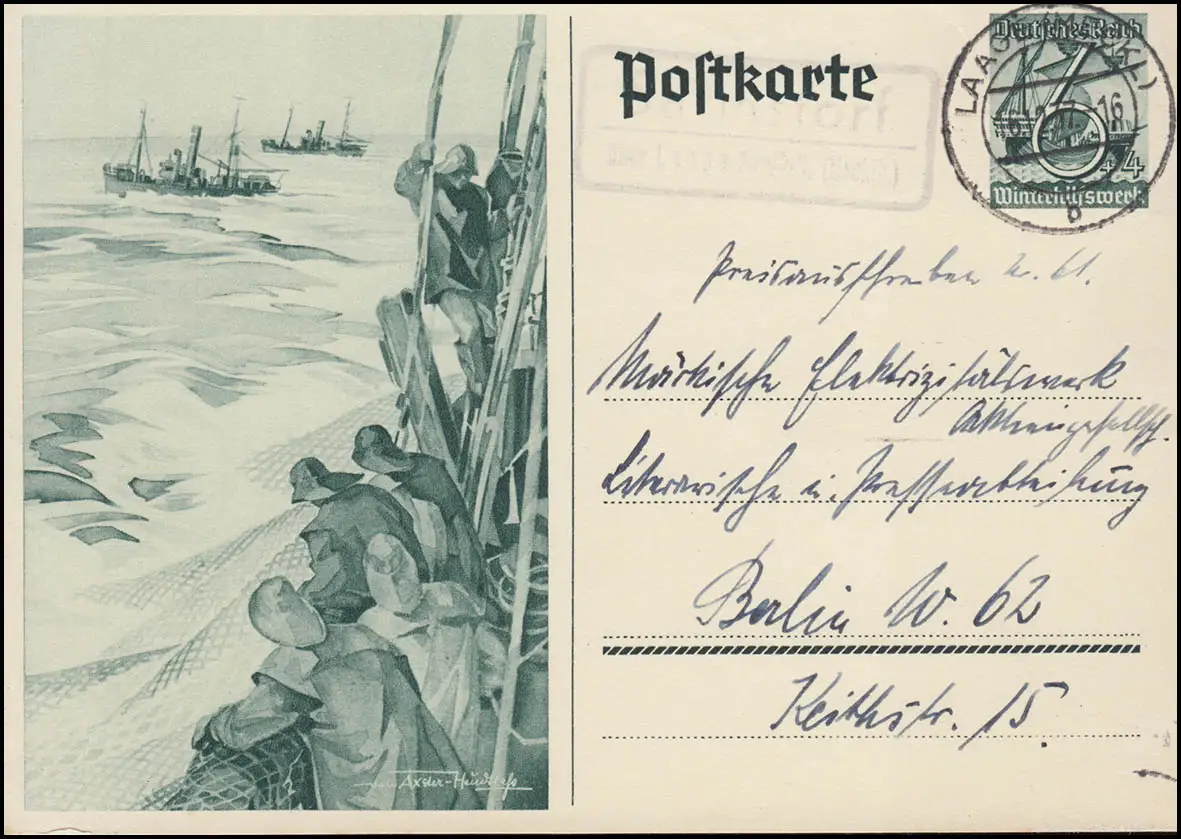 Postkarte
Deutsches Reich
6+4
Winterhilfswerk
LAAGE (MECKL)
16
b
Preisausschreiben N. 61.
Märkische Elektrizitätswerk
Aktiengesellsch.
Literarische u. Presseabteilung
Berlin W. 62
Keithstr. 15.
Axster-Heudtlaß